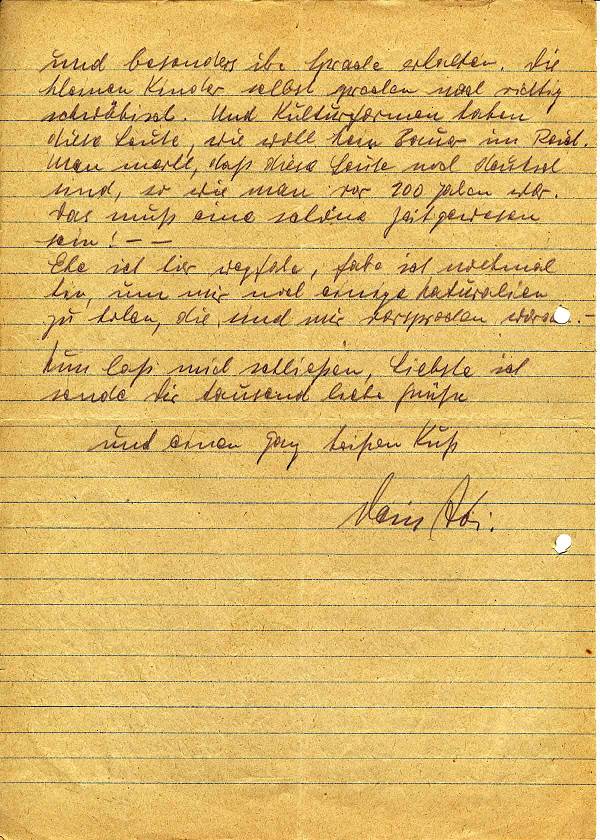 und besonders ihre Sprache erhalten. Die
kleinen Kinder selbst sprechen noch richtig
schwäbisch. Und Kulturformen haben
diese Leute, wie wohl kein Bauer im Reich.
Man merkt, daß diese Leute noch deutsch
sind, so wie man vor 200 Jahren war.
Das muß eine schöne Zeit gewesen
sein! – –
Ehe ich hier wegfahre, fahre ich nochmal
hin, um mir noch einige Naturalien
zu holen, die mir versprochen waren. –
Nun laß mich schließen, Liebste ich
sende Dir tausend liebe Grüße
und einen ganz heißen Kuß
Dein